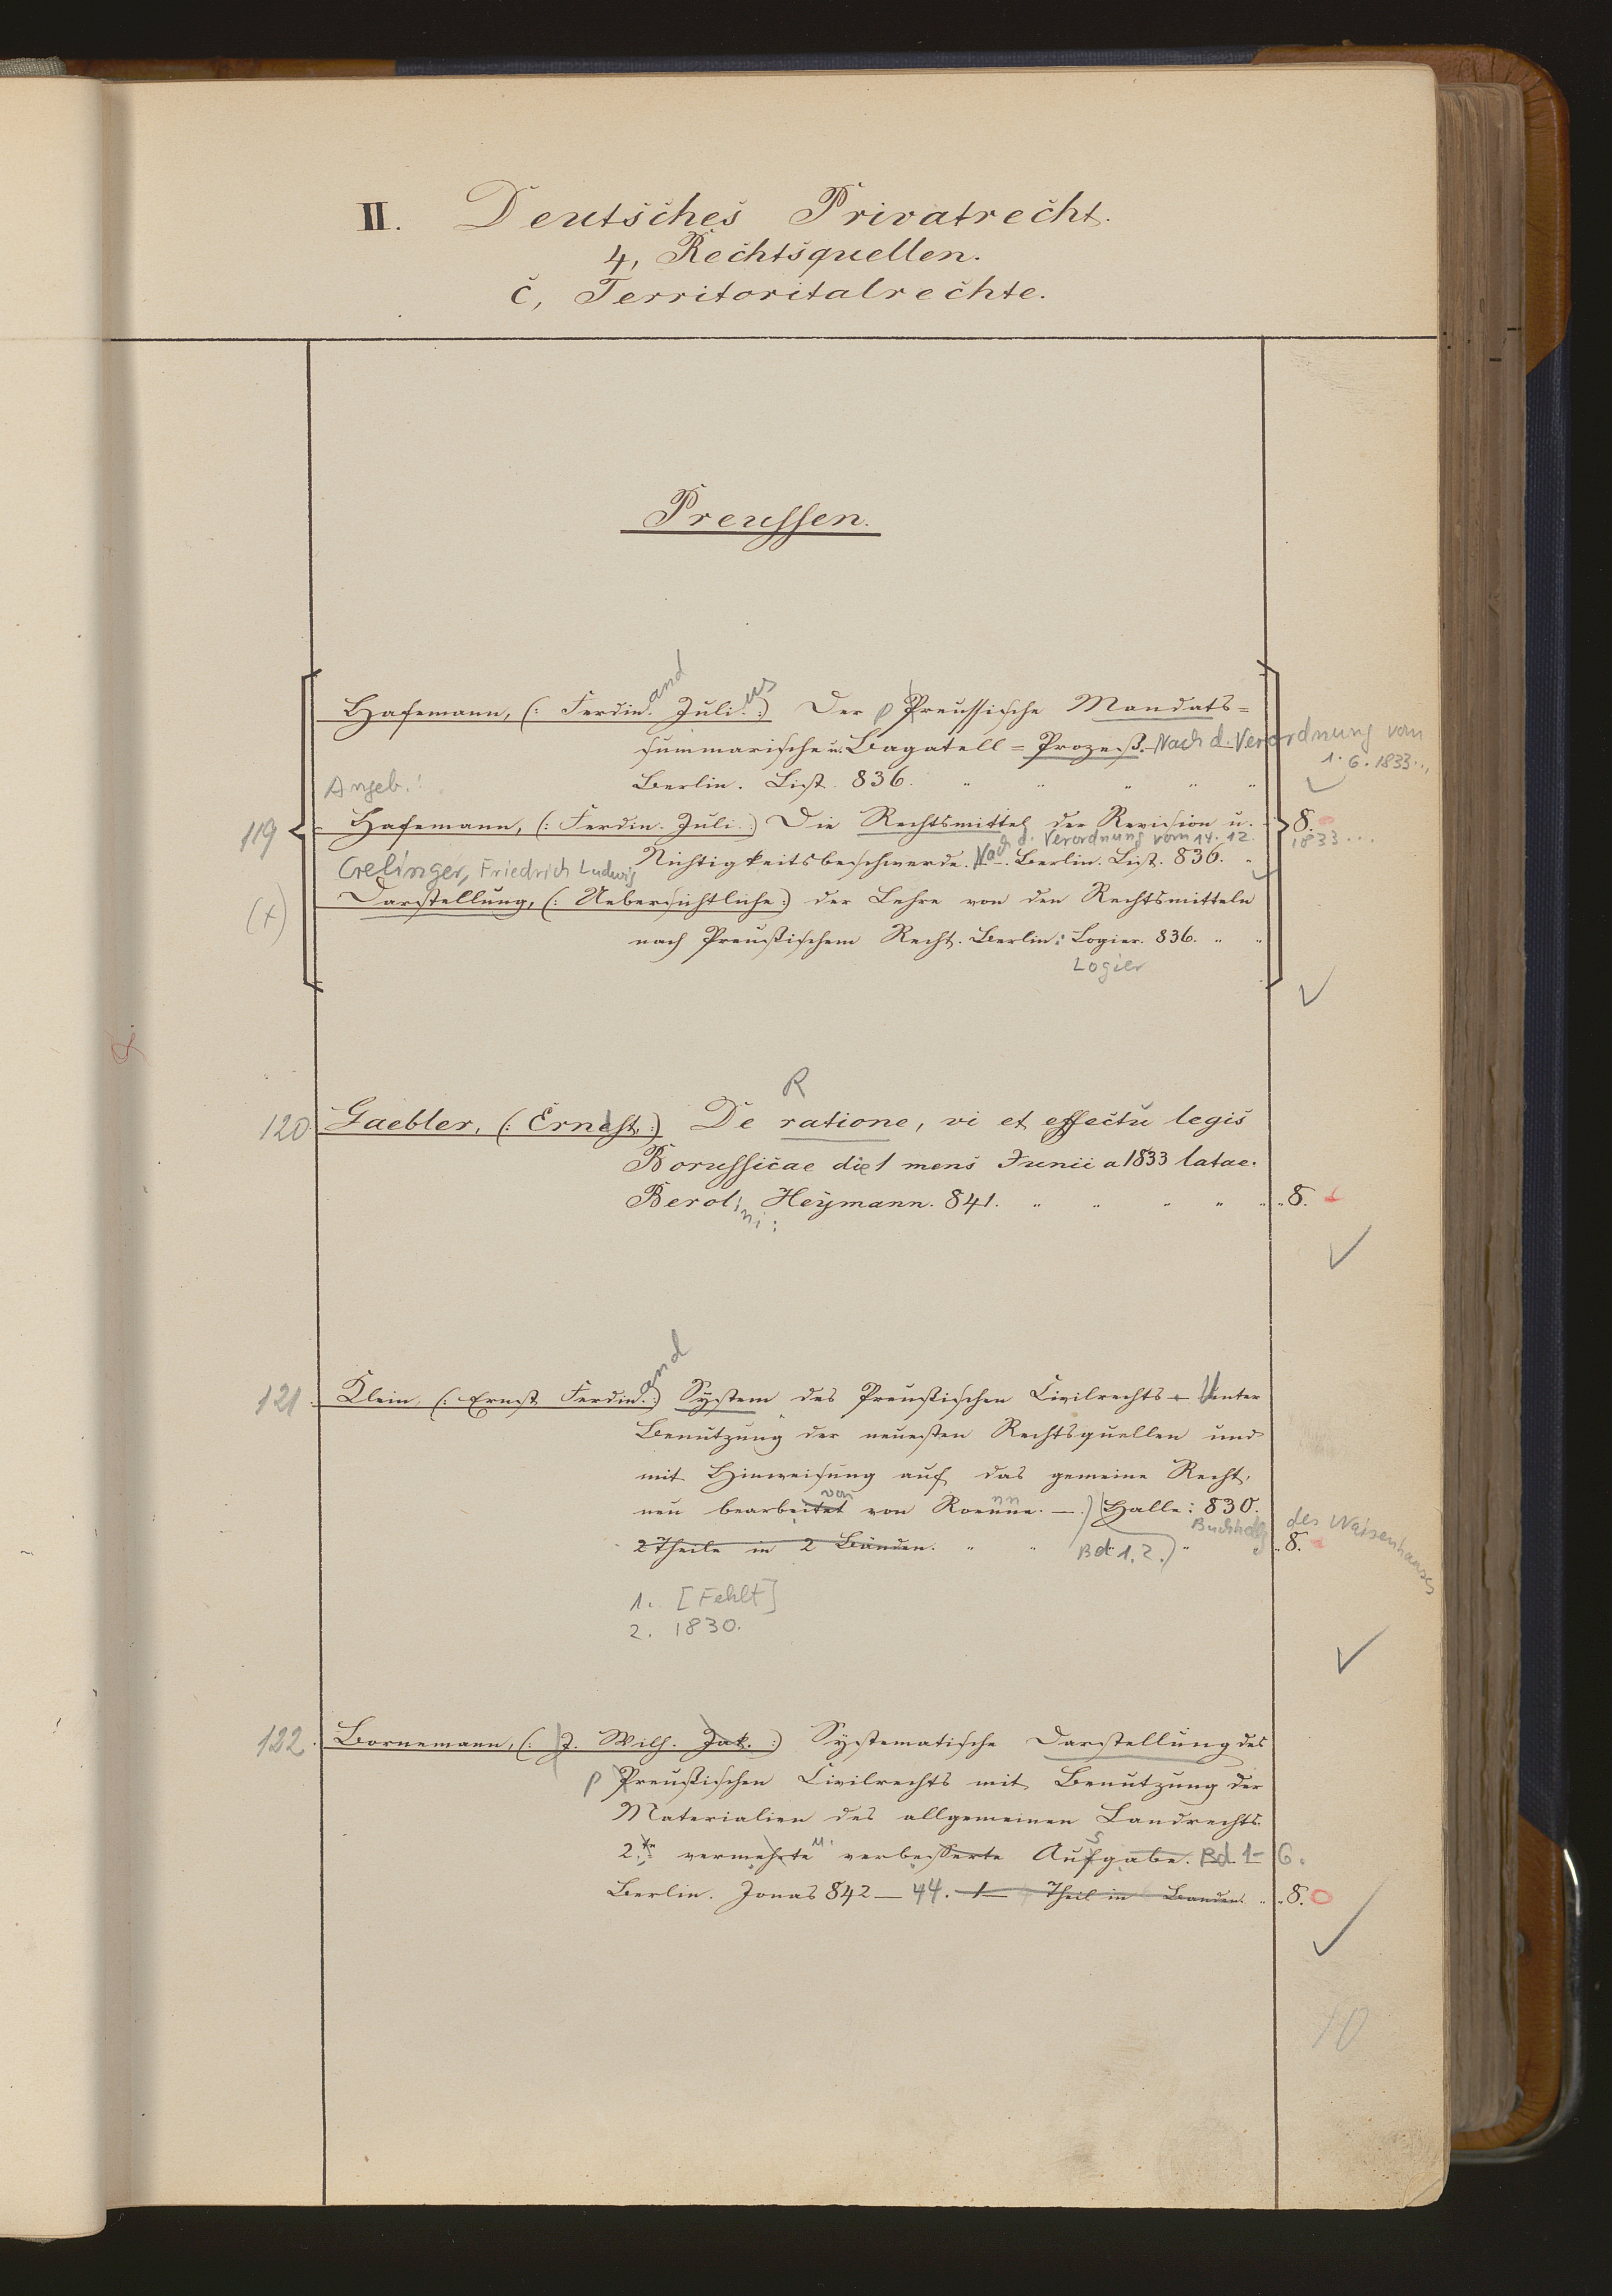 II. Deutsches Privatrecht.
4, Rechtsquellen.
c, Territoritalrechte.
Preussen.
and us
Hafemann, (: Ferdin. Juli. :) Der p Preussische Mandats=
summarische u. Bagatell = Prozeß. Nach d. Verordnung vom
1. 6. 1833...,
Angeb.: Berlin. List. 836. " " " " "
119 Hafemann, (: Ferdin. Juli. :) Die Rechtsmittel der Revision u. 8.
Nach d. Verordnung vom 14. 12. 1833...
Nichtigkeitsbeschwerde. Berlin. List. 836. "
Crelinger, Friedrich Ludwig
(x) Darstellung, (: Uebersichtliche :) der Lehre von den Rechtsmitteln
nach Preußischem Recht. Berlin: Logier. 836. " "
Logier
R
120. Gaebler, (: Ernst, :) De ratione, vi et effectu legis
Borussicae die 1 mens Junii a 1833 latae.
Berolini: Heymann. 841. " " " " " " 8.
and
121. Klein, (: Ernst Ferdin. :) System des Preußischen Civilrechts - Unter
Benutzung der neuesten Rechtsquellen und
mit Hinweisung auf das gemeine Recht,
von nn
neu bearbeitet von Roenne. —.) (Halle: 830.
Buchhdlg des Waisenhauses
2 Theile in 2 Bänden. " " Bd 1. 2.) " " 8.
1. [Fehlt]
2. 1830.
122. Bornemann, (: J. Wilh. Jak. :) Systematische Darstellung des
p Preußischen Civilrechts mit Benutzung der
Materialien des allgemeinen Landrechts.
2.te vermehrte u. verbesserte Ausgabe. Bd. 1-6.
Berlin. Jonas 842 — 44. 1— Theil in Banden. " " 8.
10